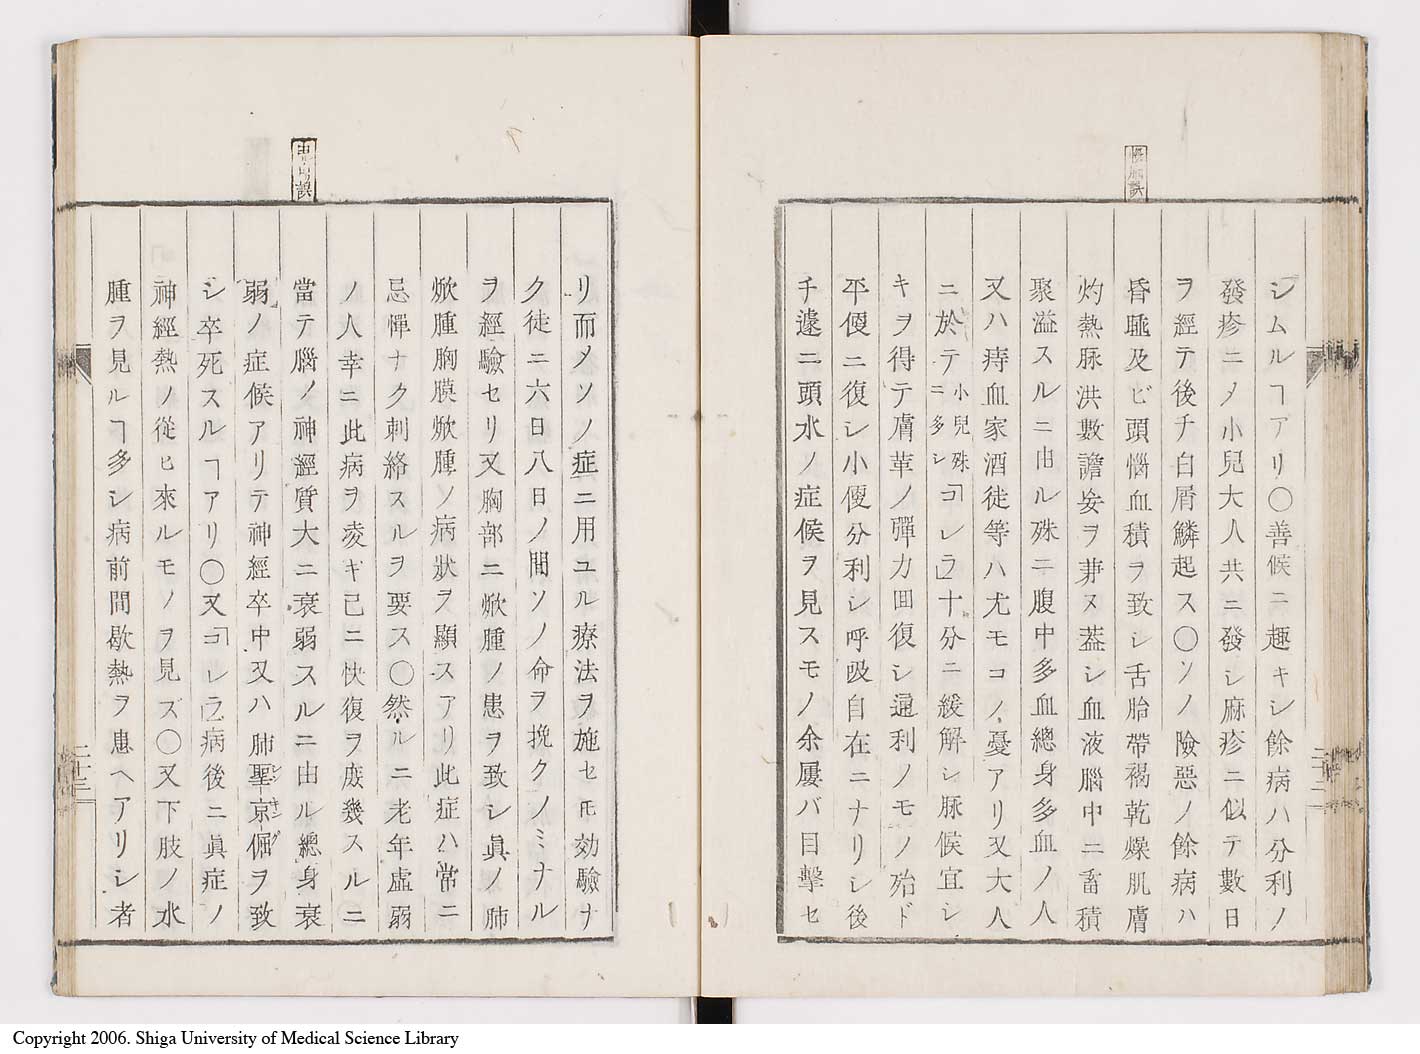 シムルヿアリ〇善候ニ趣キシ餘病ハ分利ノ
發疹ニノ小兒大人共ニ發シ麻疹ニ似テ數日
ヲ經テ後チ白屑鱗起ス〇ソノ險惡ノ餘病ハ
昏及ビ頭惱血積ヲ致シ舌胎帶褐乾燥肌膚
灼熱脉洪數譫妄ヲ兼ヌ蓋シ血液腦中ニ畜積
聚溢スルニ由ル殊ニ腹中多血總身多血ノ人
又ハ痔血家酒徒等ハ尤モコノ憂アリ又大人
ニ於テ小兒殊ニ多シ「コレラ」十分ニ緩解シ脉候宜シ
キヲ得テ膚革ノ彈力囬復シ通利ノモノ殆ド
平復ニ復シ小便分利シ呼吸自在ニナリシ後
チ遽ニ頭水ノ症候ヲ見スモノ余屢バ目擊セ
リ而メソノ症ニ用ユル療法ヲ施セモ効驗ナ
ク徒ニ六日八日ノ間ソノ命ヲ挽クノミナル
ヲ經驗セリ又胸部ニ焮腫ノ患ヲ致シ眞ノ肺
焮腫胸膜焮腫ノ病狀ヲ顯スアリ此症ハ常ニ
忌憚ナク刺絡スルヲ要ス〇然ルニ老年虛弱
ノ人幸ニ此病ヲ凌ギ已ニ快復ヲ庶幾スルニ
當テ腦ノ神經質大ニ衰弱スルニ由ル總身衰
弱ノ症候アリテ神經卒中又ハ肺聖京倔ヲ致
シ卒死スルヿアリ〇又「コレラ」病後ニ眞症ノ
神經熱ノ從ヒ來ルモノヲ見ズ〇又下肢ノ水
腫ヲ見ルヿ多シ病前間歇熱ヲ患ヘアリシ者
二十二
二十三